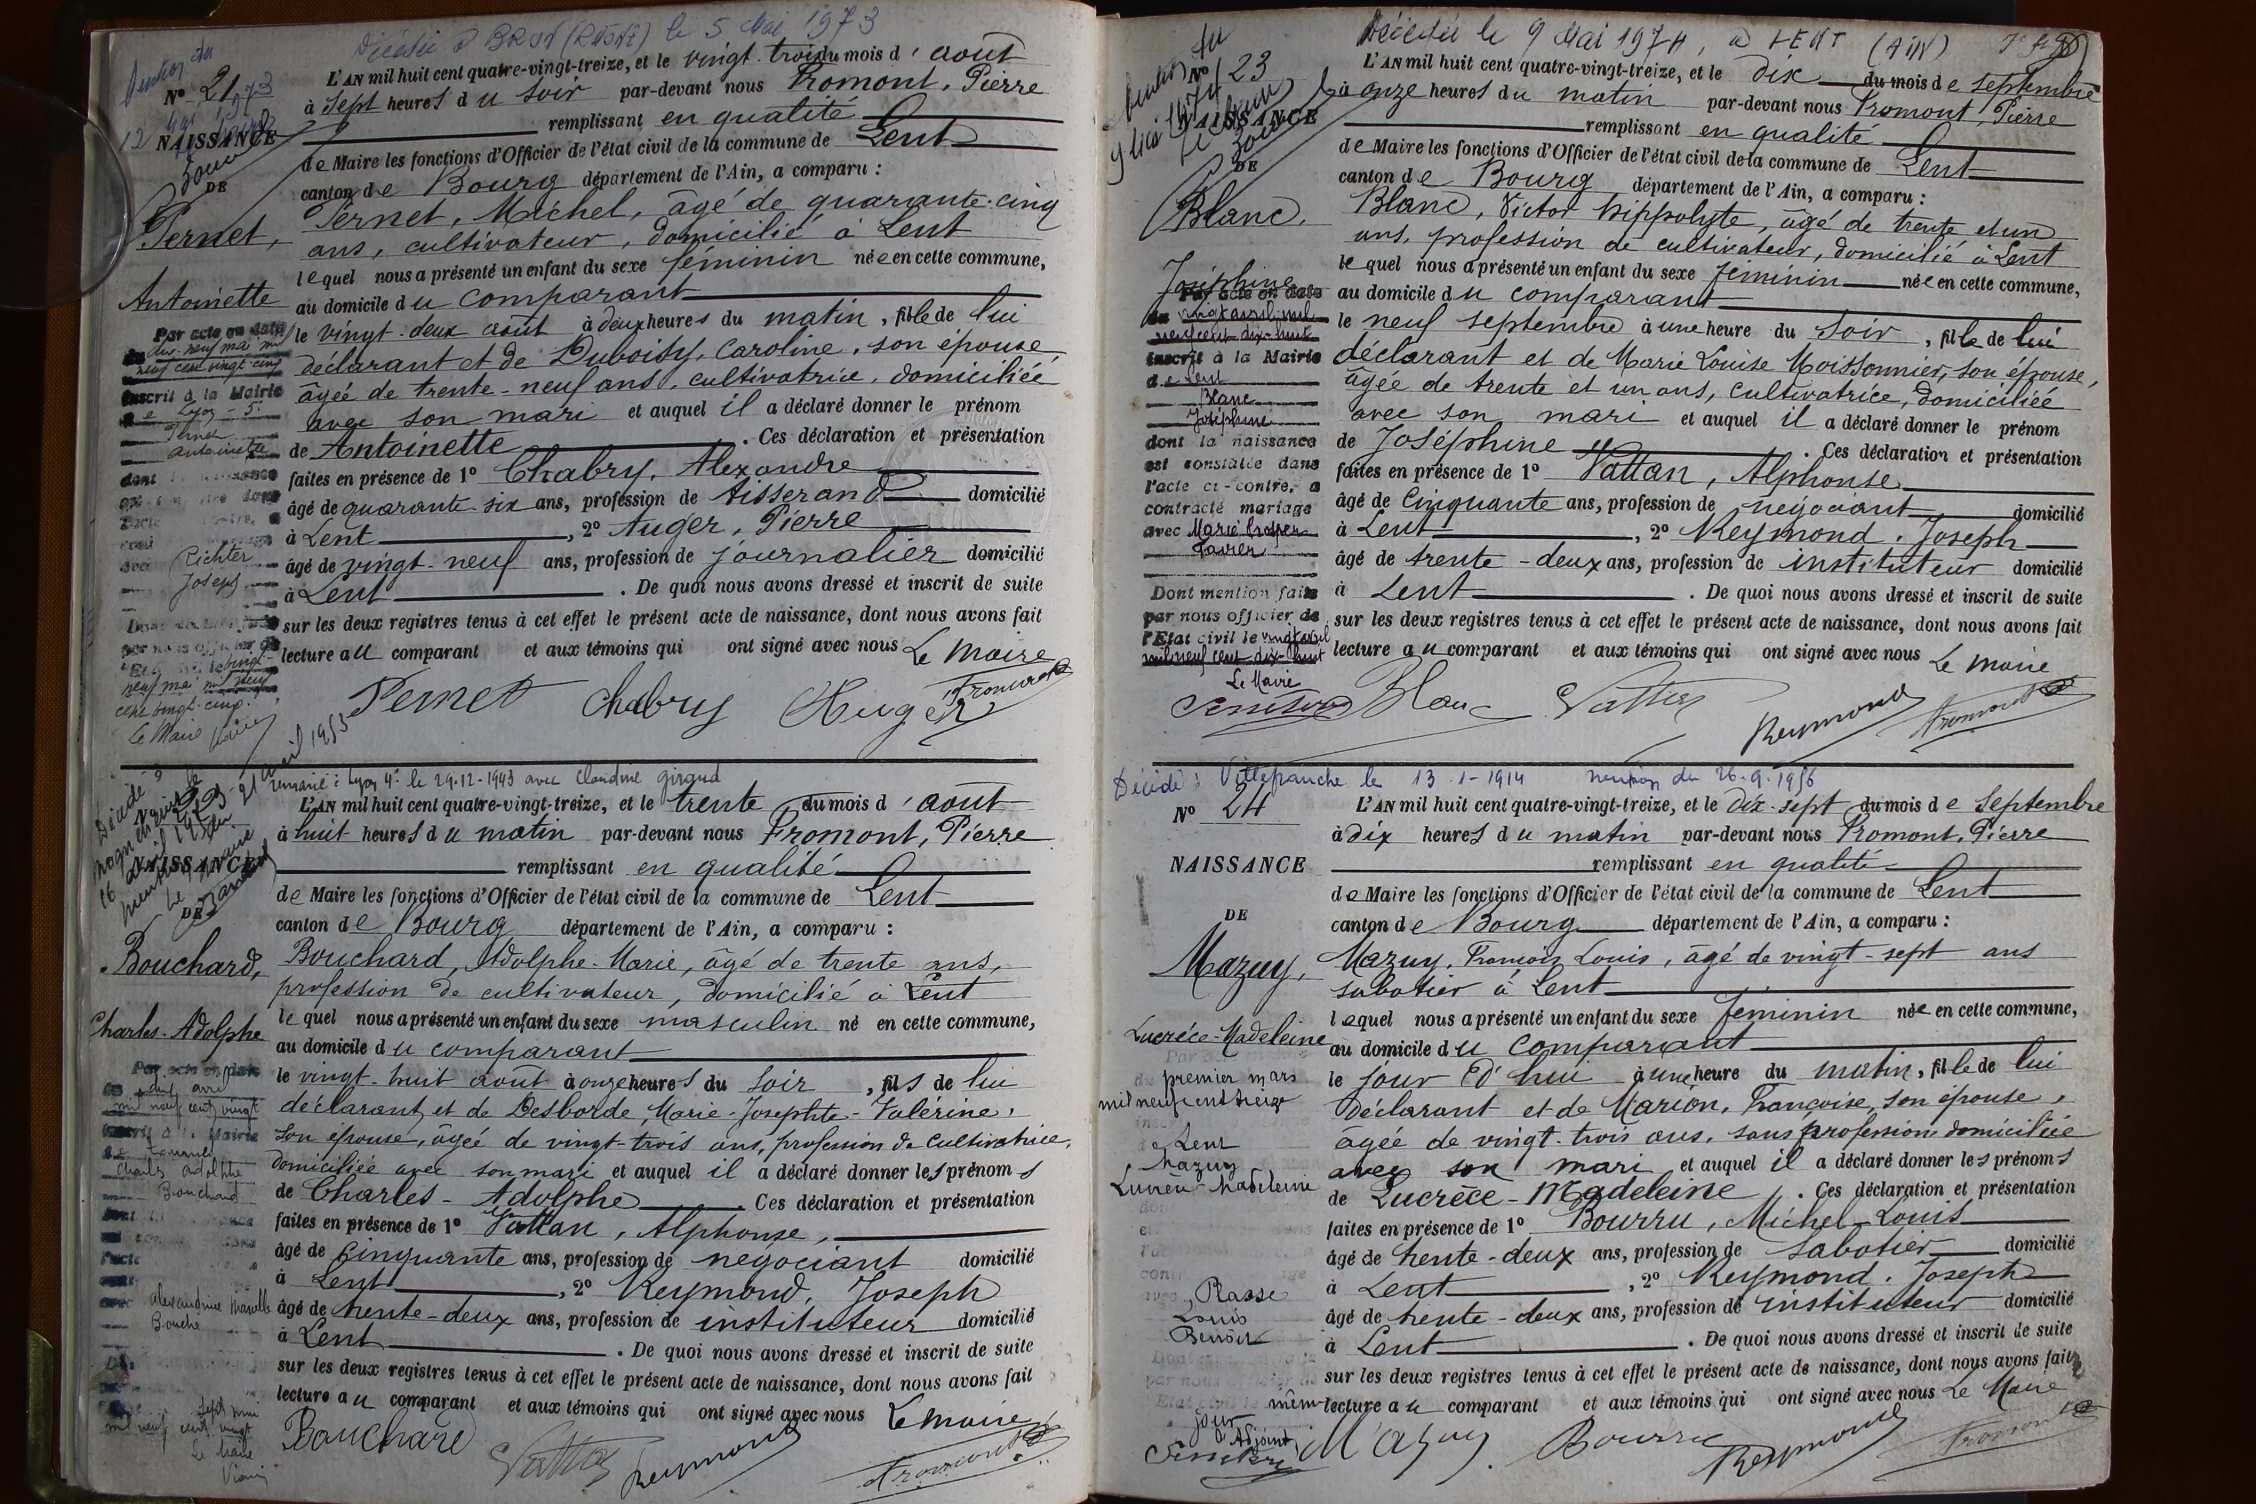 Décédée à BRON (RHÔNE) le 5 Mai 1973
Nº 21
NAISSANCE
DE
Pernet,
Antoinette
L'AN mil huit cent quatre-vingt-treize, et le vingt-trois du mois d'août
à sept heures du soir par-devant nous Fromont, Pierre
remplissant en qualité
de Maire les fonctions d'Officier de l'état civil de la commune de Lent
canton de Bourg département de l'Ain, a comparu :
Pernet, Michel, âgé de quarante-cinq
ans, cultivateur, domicilié à Lent
lequel nous a présenté un enfant du sexe féminin née en cette commune,
au domicile du comparant
le vingt-deux août à deux heures du matin, fille de lui
déclarant et de Duboisy, Caroline, son épouse
âgée de trente-neuf ans, cultivatrice, domiciliée
avec son mari et auquel il a déclaré donner le prénom
de Antoinette. Ces déclaration et présentation
faites en présence de 1º Chabry, Alexandre
âgé de quarante-six ans, profession de tisserand domicilié
à Lent, 2º Auger, Pierre
âgé de vingt-neuf ans, profession de journalier domicilié
à Lent. De quoi nous avons dressé et inscrit de suite
sur les deux registres tenus à cet effet le présent acte de naissance, dont nous avons fait
lecture au comparant et aux témoins qui ont signé avec nous Le Maire
Pernet Chabry Auger Fromont
Par acte en date
du dix-neuf mai mil
neuf cent vingt cinq
inscrit à la Mairie
de Lyon - 5e
Pernet
Antoinette
Richter
Joseph
neuf mai mil neuf
cent vingt-cinq.
Le Maire
remarié : Lyon 4e le 29-12-1943 avec Claudine Giraud
Nº 22
NAISSANCE
DE
Bouchard,
Charles-Adolphe
L'AN mil huit cent quatre-vingt-treize, et le trente du mois d'août
à huit heures du matin par-devant nous Fromont, Pierre
remplissant en qualité
de Maire les fonctions d'Officier de l'état civil de la commune de Lent
canton de Bourg département de l'Ain, a comparu :
Bouchard, Adolphe-Marie, âgé de trente ans,
profession de cultivateur, domicilié à Lent
lequel nous a présenté un enfant du sexe masculin né en cette commune,
au domicile du comparant
le vingt-huit août à onze heures du soir, fils de lui
déclarant et de Desborde, Marie-Josephte-Valérine,
son épouse, âgée de vingt-trois ans, profession de cultivatrice,
domiciliée avec son mari et auquel il a déclaré donner les prénoms
de Charles-Adolphe. Ces déclaration et présentation
faites en présence de 1º Vattan, Alphonse,
âgé de cinquante ans, profession de négociant domicilié
à Lent, 2º Reymond, Joseph
âgé de trente-deux ans, profession de instituteur domicilié
à Lent. De quoi nous avons dressé et inscrit de suite
sur les deux registres tenus à cet effet le présent acte de naissance, dont nous avons fait
lecture au comparant et aux témoins qui ont signé avec nous Le Maire
Bouchard Vattan Reymond Fromont
Par acte en date
avril
mil neuf cent vingt
inscrit à la Mairie
Charles Adolphe
Bouchard
Alexandrine
Bouche
sept mai
mil neuf cent vingt
Le Maire
Décédée le 9 Mai 1974, à LENT (AIN)
Nº 23
NAISSANCE
DE
Blanc,
Joséphine
L'AN mil huit cent quatre-vingt-treize, et le dix du mois de septembre
à onze heures du matin par-devant nous Fromont, Pierre
remplissant en qualité
de Maire les fonctions d'Officier de l'état civil de la commune de Lent
canton de Bourg département de l'Ain, a comparu :
Blanc, Victor Hippolyte, âgé de trente et un
ans, profession de cultivateur, domicilié à Lent
lequel nous a présenté un enfant du sexe féminin née en cette commune,
au domicile du comparant
le neuf septembre à une heure du soir, fille de lui
déclarant et de Marie Louise Moissonnier, son épouse,
âgée de trente et un ans, cultivatrice, domiciliée
avec son mari et auquel il a déclaré donner le prénom
de Joséphine. Ces déclaration et présentation
faites en présence de 1º Vattan, Alphonse
âgé de cinquante ans, profession de négociant domicilié
à Lent, 2º Reymond, Joseph
âgé de trente-deux ans, profession de instituteur domicilié
à Lent. De quoi nous avons dressé et inscrit de suite
sur les deux registres tenus à cet effet le présent acte de naissance, dont nous avons fait
lecture au comparant et aux témoins qui ont signé avec nous Le Maire
Blanc Vattan Reymond Fromont
Par acte en date
du vingt avril mil
neuf cent dix-huit
inscrit à la Mairie
de Lent
Blanc
Joséphine
dont la naissance
est constatée dans
l'acte ci-contre, a
contracté mariage
avec Marie Prosper
Dont mention faite
par nous officier de
l'Etat civil le vingt avril
mil neuf cent dix-huit
Le Maire
Décédé : Villefranche le 13-1-1914 mention du 26-9-1956
Nº 24
NAISSANCE
DE
Mazuy,
Lucrèce-Madeleine
L'AN mil huit cent quatre-vingt-treize, et le dix-sept du mois de septembre
à dix heures du matin par-devant nous Fromont, Pierre
remplissant en qualité
de Maire les fonctions d'Officier de l'état civil de la commune de Lent
canton de Bourg département de l'Ain, a comparu :
Mazuy, François Louis, âgé de vingt-sept ans
sabotier à Lent
lequel nous a présenté un enfant du sexe féminin née en cette commune,
au domicile du comparant
le jour d'hui à une heure du matin, fille de lui
déclarant et de Marion, Françoise, son épouse,
âgée de vingt-trois ans, sans profession domiciliée
avec son mari et auquel il a déclaré donner les prénoms
de Lucrèce-Madeleine. Ces déclaration et présentation
faites en présence de 1º Bourru, Michel-Louis
âgé de trente-deux ans, profession de sabotier domicilié
à Lent, 2º Reymond, Joseph
âgé de trente-deux ans, profession de instituteur domicilié
à Lent. De quoi nous avons dressé et inscrit de suite
sur les deux registres tenus à cet effet le présent acte de naissance, dont nous avons fait
lecture au comparant et aux témoins qui ont signé avec nous Le Maire
Mazuy Bourru Reymond Fromont
premier mars
mil neuf cent treize
Lent
Mazuy
Lucrèce-Madeleine
Rasse
Louis
Benoît
même
jour
L'Adjoint,